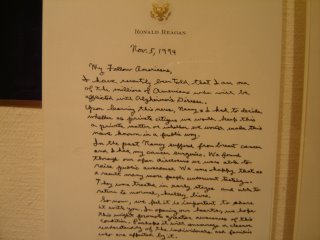 RONALD REAGAN
Nov. 5, 1994
My Fellow Americans,
I have recently been told that I am one
of the millions of Americans who will be
afflicted with Alzheimer's Disease.
Upon learning this news, Nancy & I had to decide
whether as private citizens we would keep this
a private matter or whether we would make this
news known in a public way.
In the past Nancy suffered from breast cancer
and I had my cancer surgeries. We found
through our open disclosures we were able to
raise public awareness. We were happy that as
a result many more people underwent testing.
They were treated in early stages and able to
return to normal, healthy lives.
So now, we feel it is important to share
it with you. In opening our hearts, we hope
this might promote greater awareness of this
condition. Perhaps it will encourage a clearer
understanding of the individuals and families
who are affected by it.